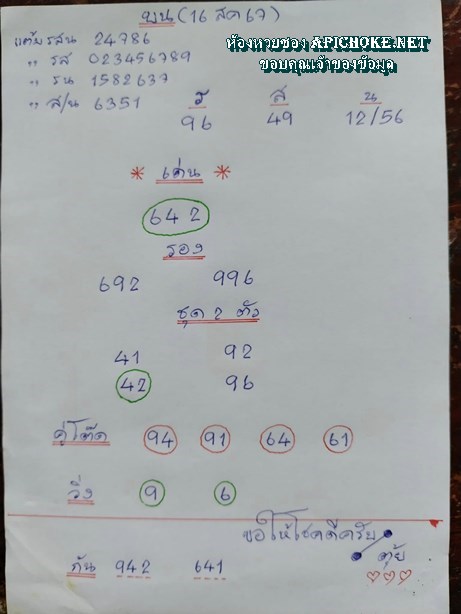 บน (16 สค 67)
ห้องหวยซอง APICHOKE.NET
ขอบคุณเจ้าของข้อมูล
แต้ม รสน 24786
,, รส 023456789
,, รน 1582637
,, ส/น 6351
ร ส น
96 49 12/56
* เด่น *
642
รอง
692 996
ชุด 2 ตัว
41 92
42 96
คู่โต๊ด 94 91 64 61
วิ่ง 9 6
ขอให้โชคดีครับ
ตุ้ย
กัน 942 641